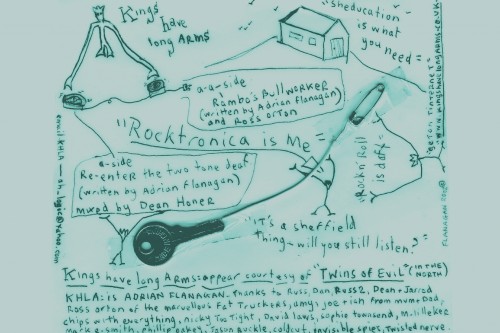 Kings
have
long ARMS
"sheducation
is what
you need"
a-a-side
Rambo's Bullworker
(written by Adrian Flanagan)
and Ross Orton
"Rocktronica is Me"
a-side
Re-enter the two tone deaf
(written by Adrian Flanagan)
mixed by Dean Honer
"Rock n' Roll
is daft"
"It's a sheffield
Thing-will you still listen?"
Kings have long Arms=appear courtesy of "Twins of Evil" (IN THE NORTH)
KHLA: is ADRIAN FLANAGAN. Thanks to Russ, Dan, Russ 2, Dean + Jarrod
Ross orton of the marvellous Fat Truckers, amy; joe + rish from mum + Dad,
chips with everything, nicky Too Tight, David laws, sophie townsend,
mark e-smith, Phillip oakey, Jason Buckle, coldcut, invisible spies, Twisted nerve.